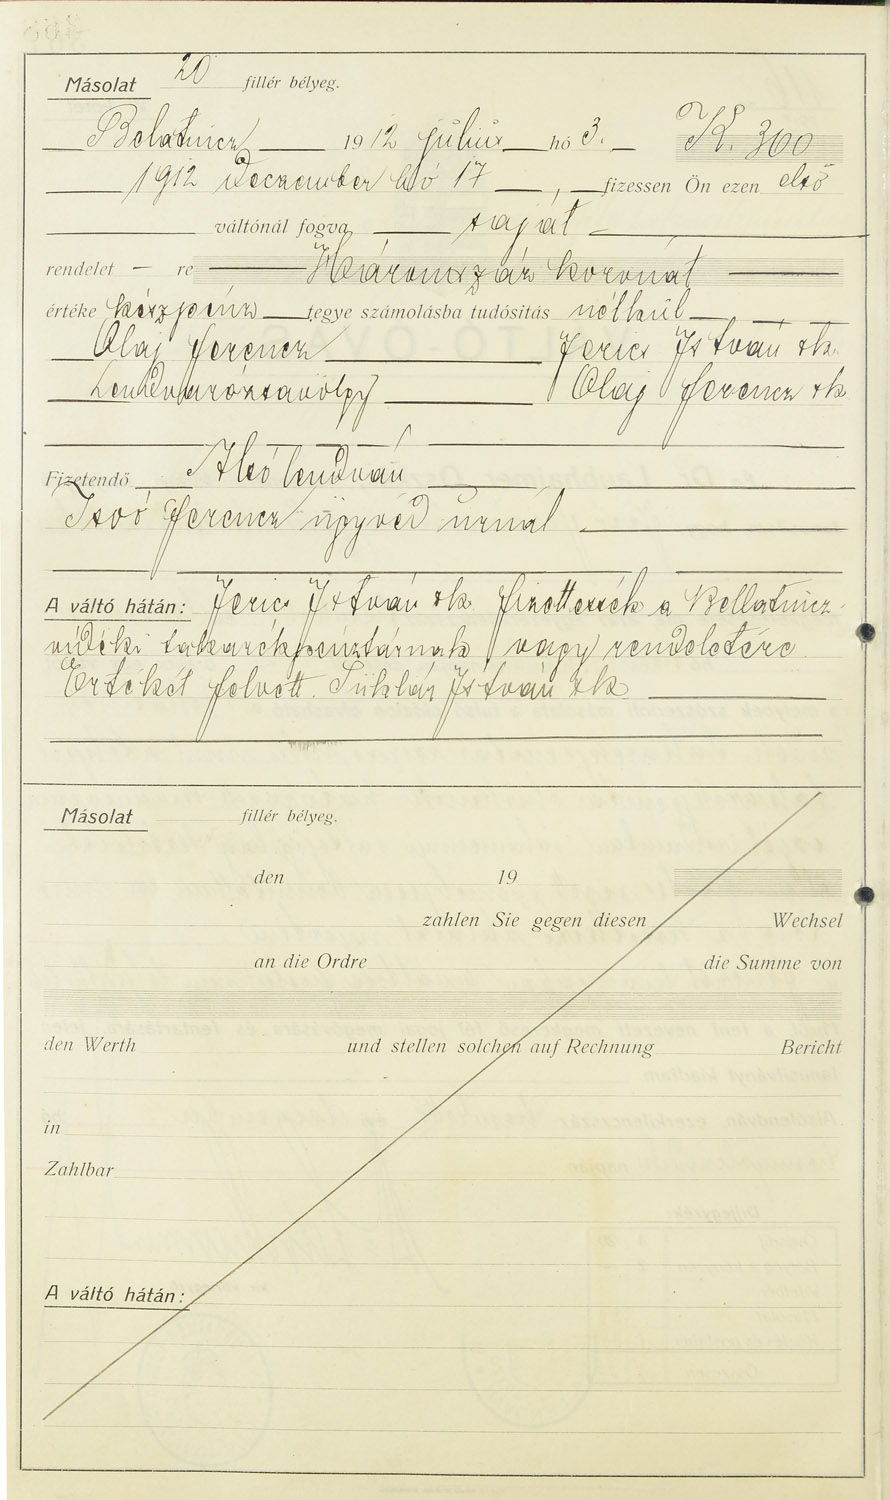 Másolat 20 fillér bélyeg.
Belatincz 1912 július hó 3. K. 300
1912 deczember hó 17 , fizessen Ön ezen első
váltónál fogva saját
rendelet — re Háromszáz koronát
értéke készpénz tegye számolásba tudósítás nélkül
Olaj Ferencz Jerics István sk.
Lendvarózsavölgy Olaj Ferencz sk
Fizetendő Alsó lendván
Isoó Ferencz ügyvéd úrnál
A váltó hátán: Jerics István sk fizettessék a Bellatincz-
vidéki takarékpénztárnak vagy rendeletére
Értékét felvett. István sk
Másolat fillér bélyeg.
den 19
zahlen Sie gegen diesen Wechsel
an die Ordre die Summe von
den Werth und stellen solchen auf Rechnung Bericht
in
Zahlbar
A váltó hátán: